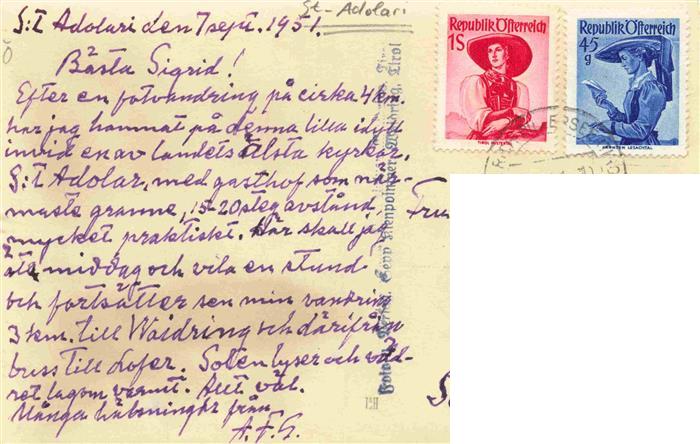 St-Adolari
S:t Adolari den 7 sept. 1951.
Bästa Sigrid!
Efter en fotvandring på cirka 4 km.
har jag hamnat på denna lilla idyll
invid en av landets älsta kyrkor,
S:t Adolar, med gasthof som när-
maste granne, 15-20 steg avstånd
mycket praktiskt. Där skall jag
äta middag och vila en stund
och fortsätter sen min vandring
3 km. till Waidring och därifrån
buss till Lofer. Solen lyser och väd-
ret lagom varmt. Allt väl.
Många hälsningar från
A.F.G.
Fru
Republik Österreich
1S
TIROL PUSTERTAL
Republik Österreich
45
g
KÄRNTEN LESACHTAL
Tirol